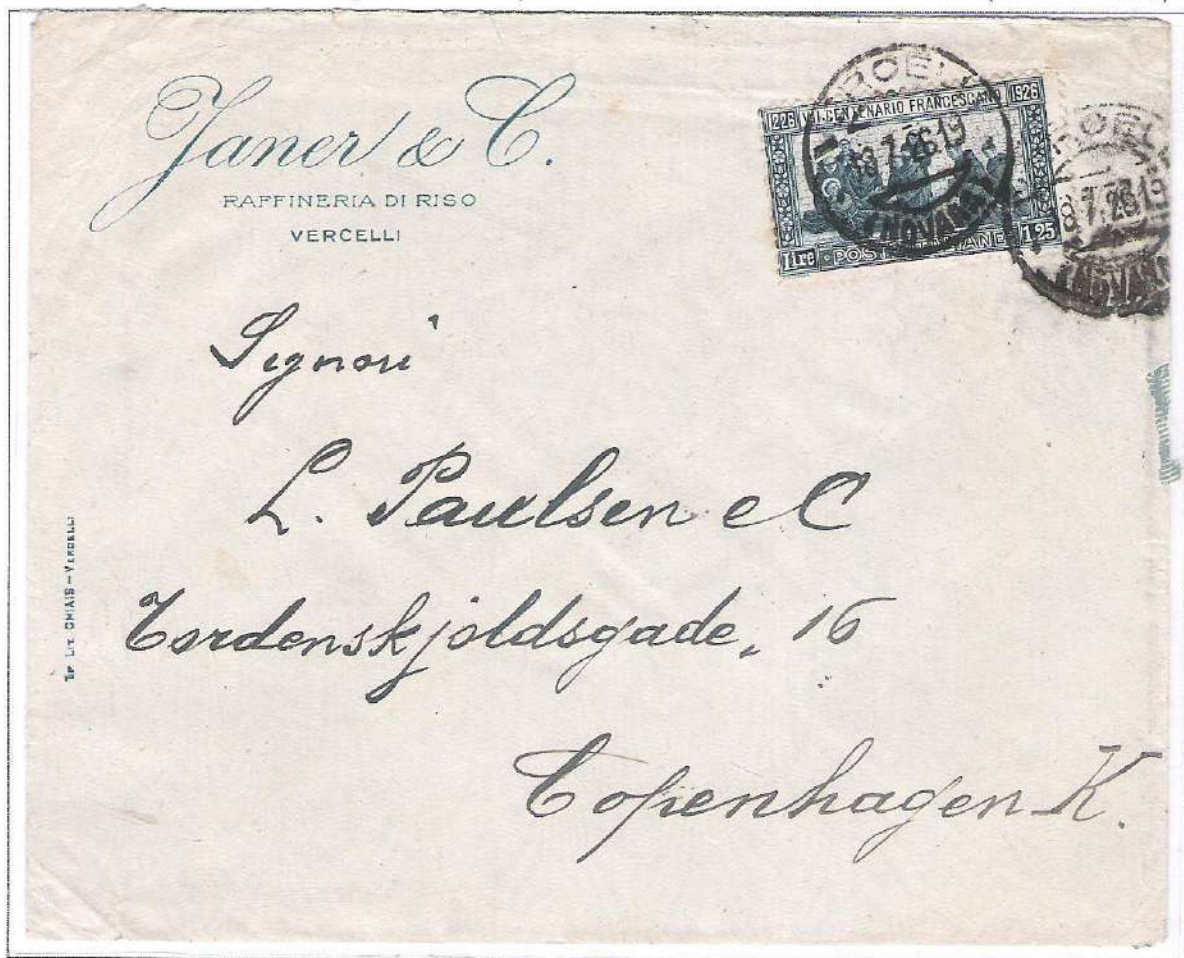 Janer & C.
RAFFINERIA DI RISO
VERCELLI
1226 VII·CENTENARIO FRANCESCANO 1926
Lire POSTE ITALIANE 1,25
13.7.26 19
(NOVARA)
7.26 19
(NOVARA
Signori
L. Paulsen e C
Tordenskjoldsgade, 16
Copenhagen K.
TIP. LIT. CHIAIS - VERCELLI